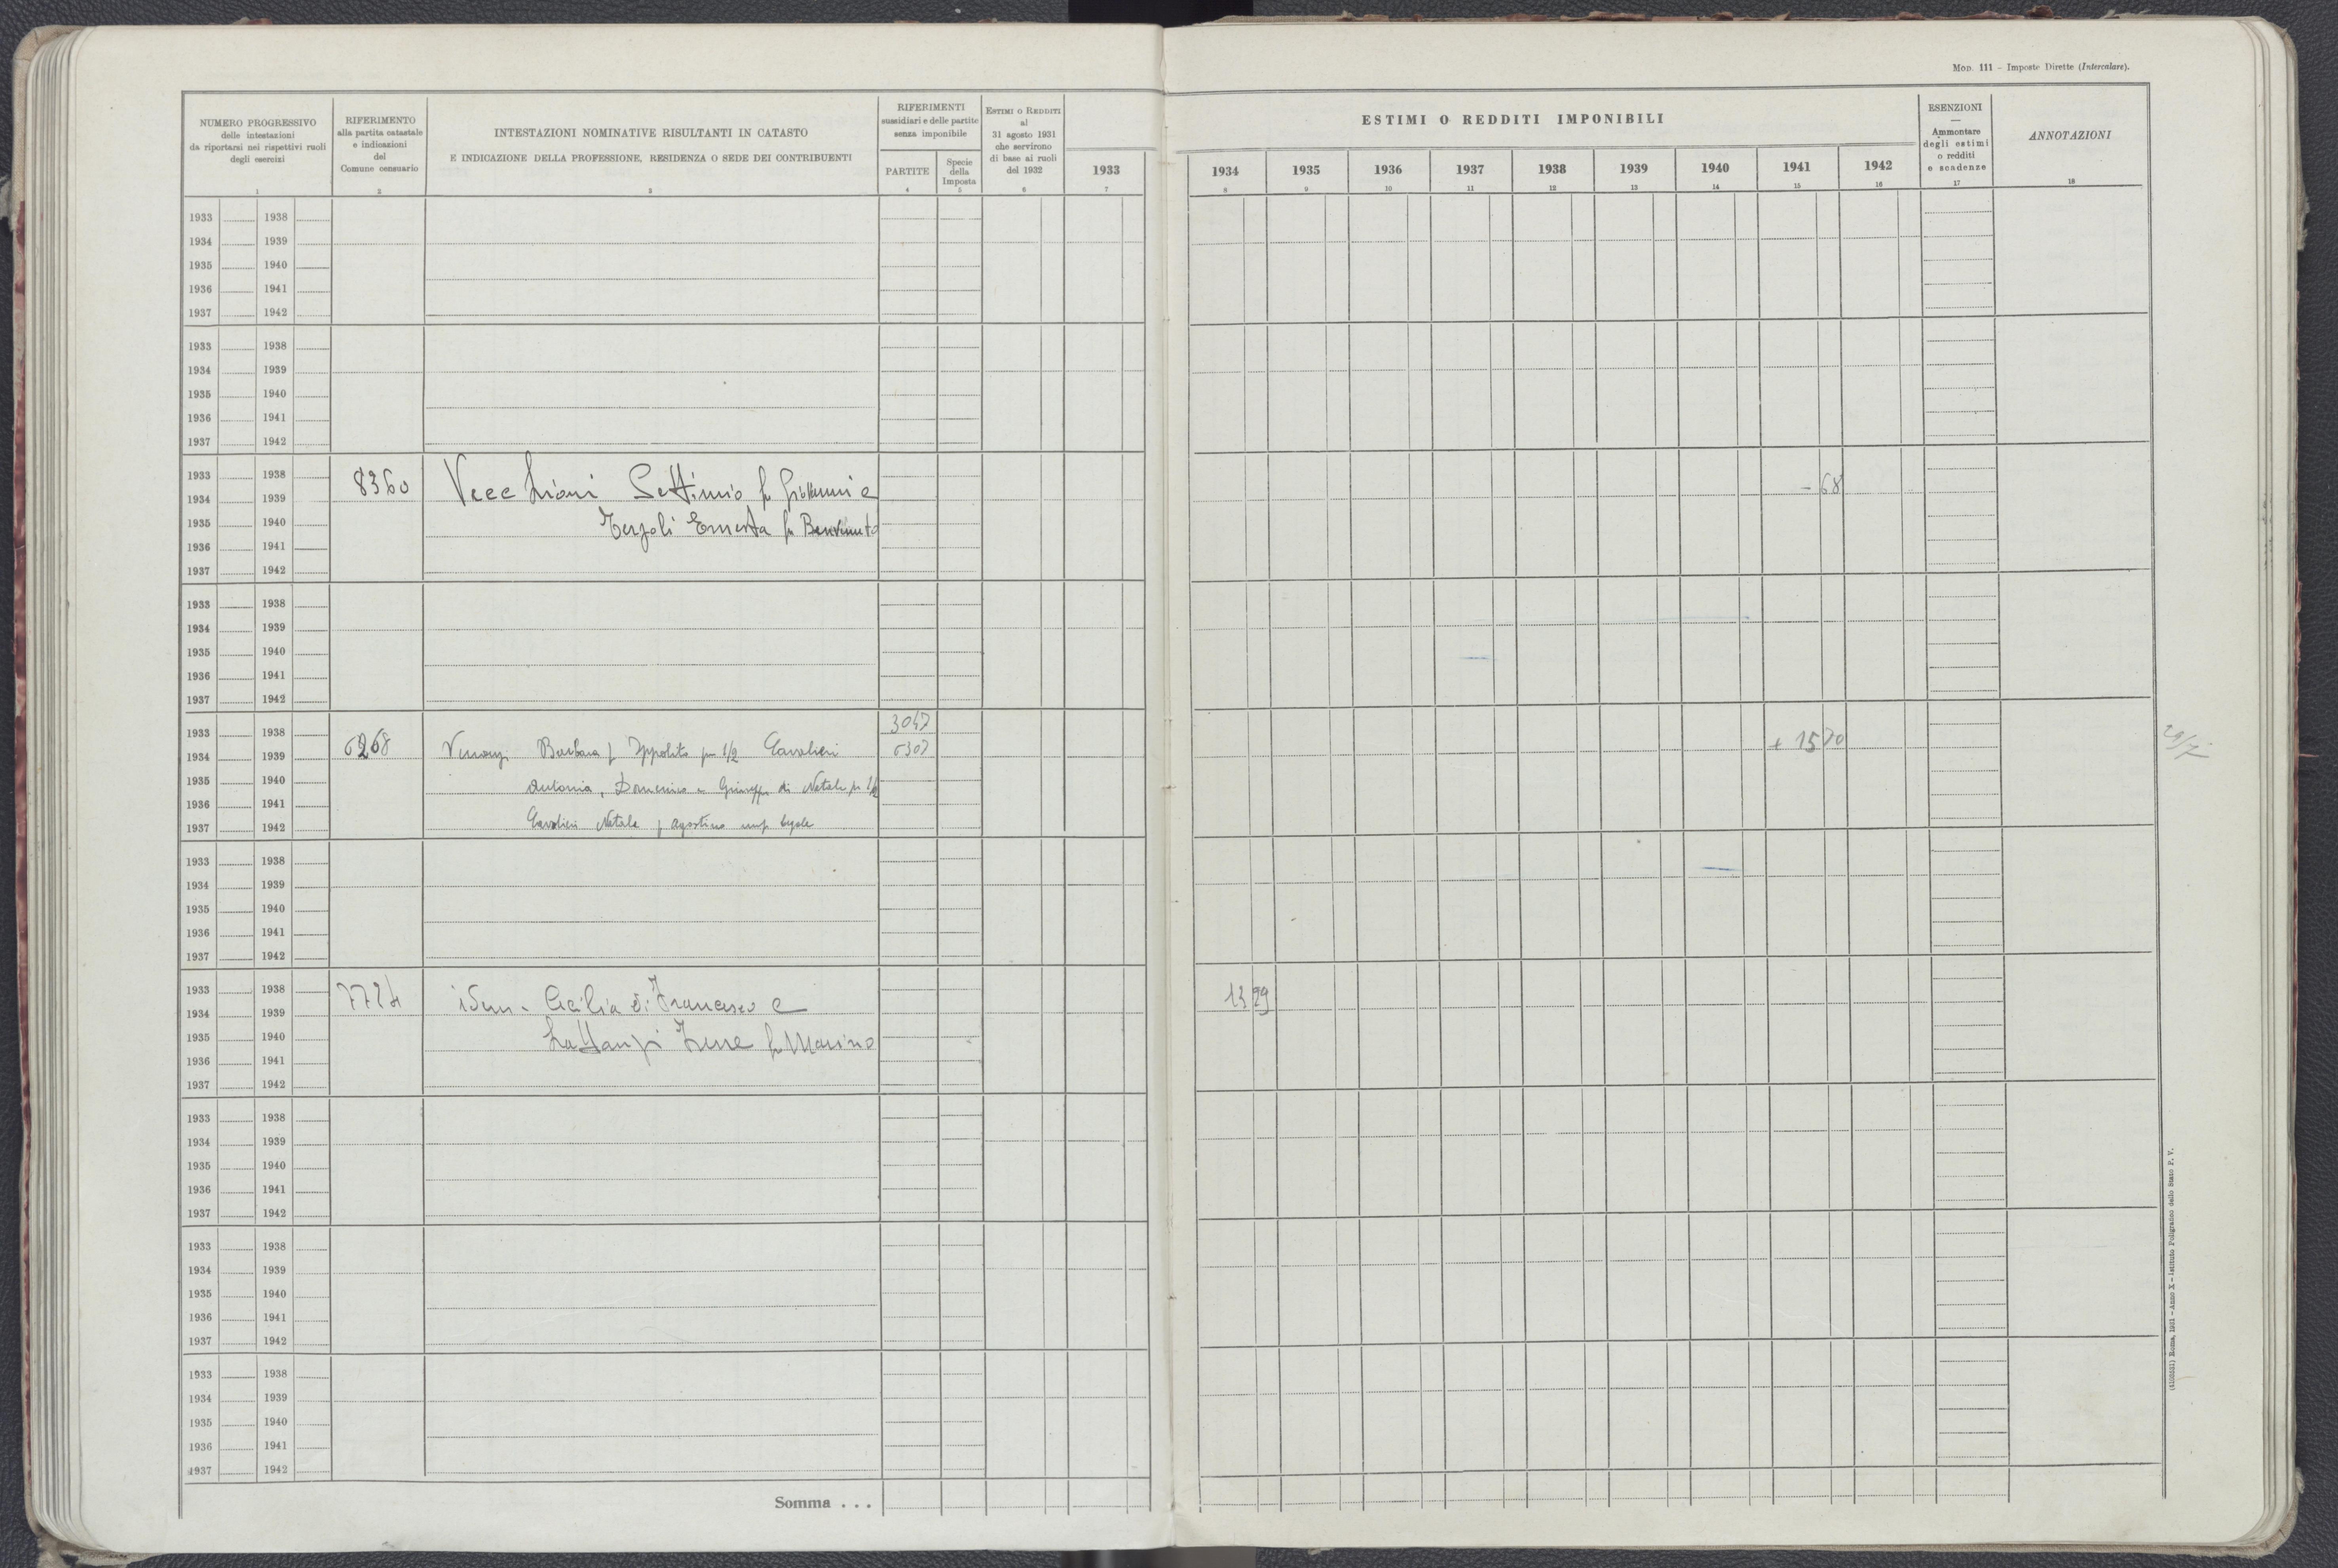 Mod. 111 - Imposte Dirette (Intercalare).
NUMERO PROGRESSIVO
delle intestazioni
da riportarsi nei rispettivi ruoli
degli esercizi
1
RIFERIMENTO
alla partita catastale
e indicazioni
del
Comune censuario
2
INTESTAZIONI NOMINATIVE RISULTANTI IN CATASTO
E INDICAZIONE DELLA PROFESSIONE, RESIDENZA O SEDE DEI CONTRIBUENTI
3
RIFERIMENTI
sussidiari e delle partite
senza imponibile
PARTITE
4
Specie
della
Imposta
5
ESTIMI O REDDITI
al
31 agosto 1931
che servirono
di base ai ruoli
del 1932
6
1933
7
ESTIMI O REDDITI IMPONIBILI
1934 1935 1936 1937 1938 1939 1940 1941 1942
8 9 10 11 12 13 14 15 16
ESENZIONI
—
Ammontare
degli estimi
o redditi
e scadenze
17
ANNOTAZIONI
18
1933 1938
1934 1939
1935 1940
1936 1941
1937 1942
1933 1938
1934 1939
1935 1940
1936 1941
1937 1942
1933 1938 8360 Vecchioni Settimio fu Giovanni e - 68
1934 1939
1935 1940 Terzoli Ernesta fu Benvenuto
1936 1941
1937 1942
1933 1938
1934 1939
1935 1940
1936 1941
1937 1942
1933 1938 3047
1934 1939 6268 Barbara f Ippolito per 1/2 Cavalieri 6307 + 15 70
1935 1940 Antonia, Domenico e Giuseppe di Natale per 1/2
1936 1941
1937 1942 Cavalieri Natale f Agostino usuf. legale
29/7
1933 1938
1934 1939
1935 1940
1936 1941
1937 1942
1933 1938
1934 1939 7724 idem - Cecilia di Francesco e 13 29
1935 1940 Lattanzi Irene fu Marino
1936 1941
1937 1942
1933 1938
1934 1939
1935 1940
1936 1941
1937 1942
1933 1938
1934 1939
1935 1940
1936 1941
1937 1942
1933 1938
1934 1939
1935 1940
1936 1941
1937 1942
Somma . . .
Roma, 1931 - Anno X - Istituto Poligrafico dello Stato P. V.